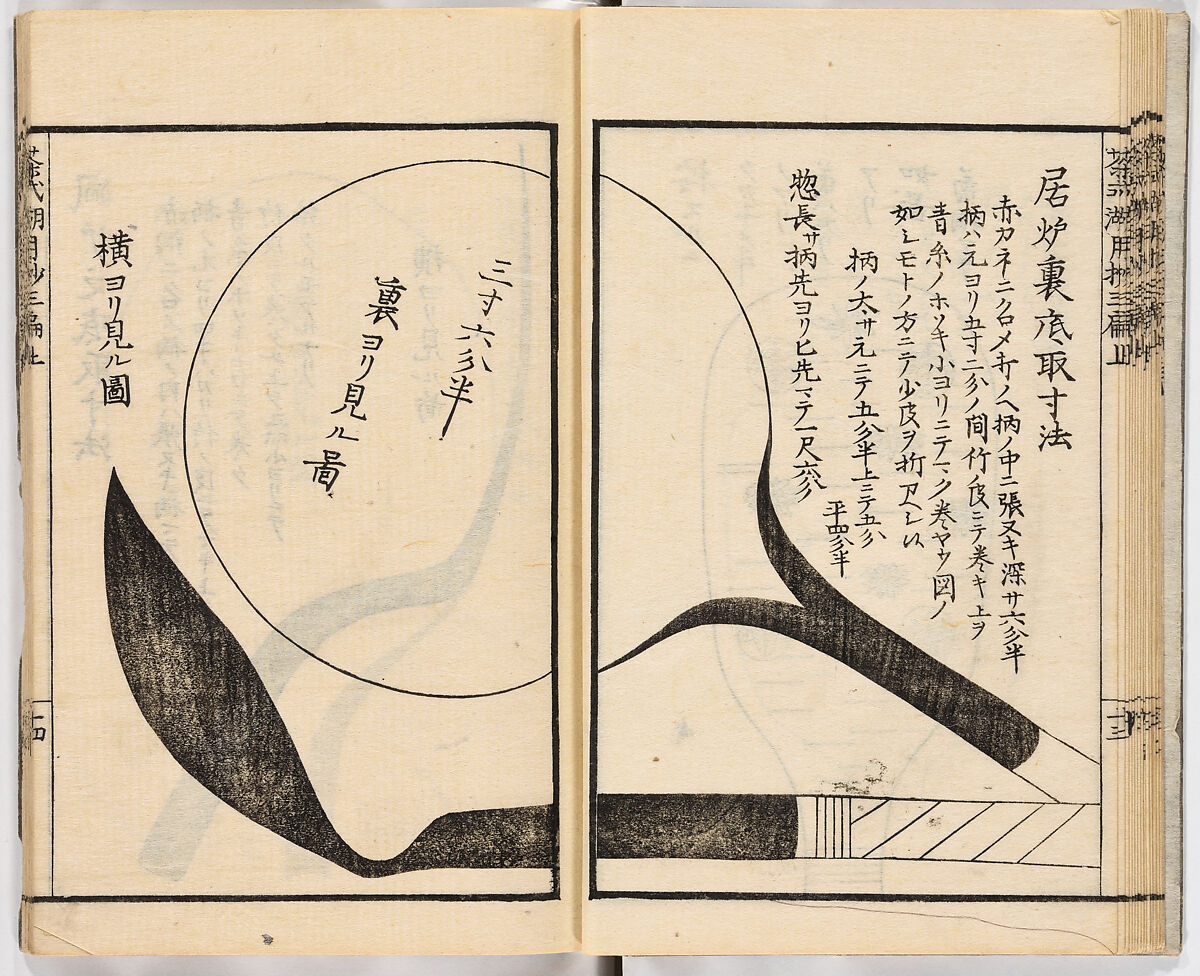 居炉裏底取寸法
赤カネニクロメ打ノヘ柄ノ中ニ張ヌキ深サ六分半
柄ハ元ヨリ五寸二分ノ間竹ノ皮ニテ巻キ上ヲ
青糸ノホソキ小ヨリニテマク巻ヤウ図ノ
如シモトノ方ニテ少皮ヲ折
柄ノ太サ元ニテ五分半上ニテ五分
平四分半
惣長サ柄先ヨリヒ先マテ一尺六分
三寸六分半
裏ヨリ見ル圖
横ヨリ見ル圖
茶式湖月抄三編上
十三
十四